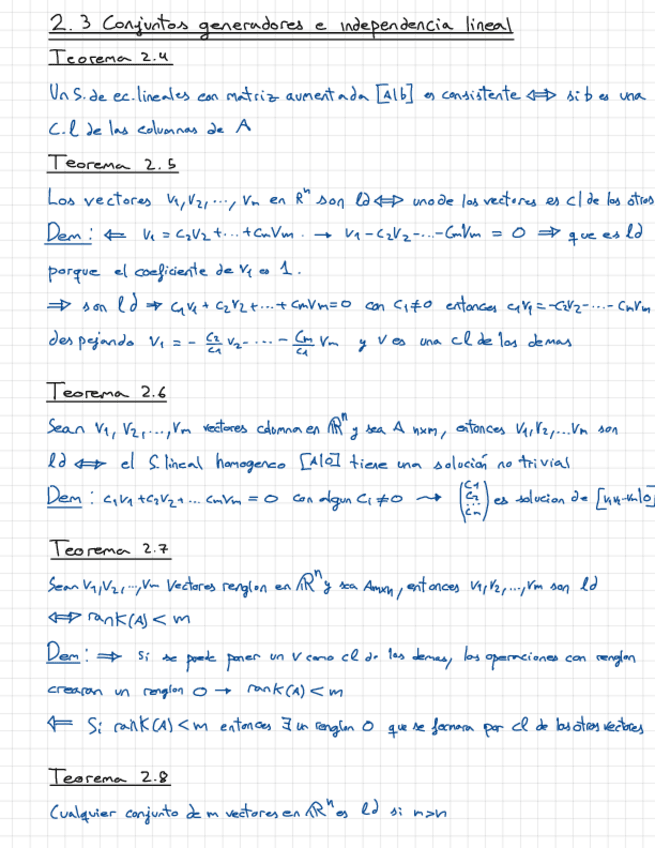 2.3 Conjuntos generadores e independencia lineal
Teorema 2.4
Un S. de ec. lineales con matriz aumentada [A|b] es consistente ⟺ si b es una
C.l de las columnas de A
Teorema 2.5
Los vectores V₁, V₂, ..., Vm en Rⁿ son ld ⟺ uno de los vectores es cl de los otros
Dem: ⇐ V₁ = C₂V₂ + ... + CmVm. → V₁ - C₂V₂ - ... - CmVm = 0 ⇒ que es ld
porque el coeficiente de V₁ es 1.
⇒ son ld → C₁V₁ + C₂V₂ + ... + CmVm = 0 con C₁≠0 entonces C₁V₁ = -C₂V₂ - ... - CmVm
despejando V₁ = - C₂/C₁ V₂ - ... - Cm/C₁ Vm y V es una cl de los demas
Teorema 2.6
Sean V₁, V₂, ..., Vm vectores columna en Rⁿ y sea A nxm, entonces V₁, V₂, ... Vm son
ld ⟺ el S. lineal homogeneo [A|0] tiene una solución no trivial
Dem: C₁V₁ + C₂V₂ + ... CmVm = 0 con algun Ci ≠ 0 → (C₁ C₂ ... Cn) es solucion de [V₁ V₂ ... Vm|0]
Teorema 2.7
Sean V₁, V₂, ..., Vm Vectores renglon en Rⁿ y sea Amxn, entonces V₁, V₂, ..., Vm son ld
⟺ rank(A) < m
Dem: ⇒ Si se puede poner un V como cl de las demas, las operaciones con renglon
crearan un renglon 0 → rank(A) < m
⇐ Si rank(A) < m entonces ∃ un renglon 0 que se formara por cl de los otros vectores
Teorema 2.8
Cualquier conjunto de m vectores en Rⁿ es ld si m>n